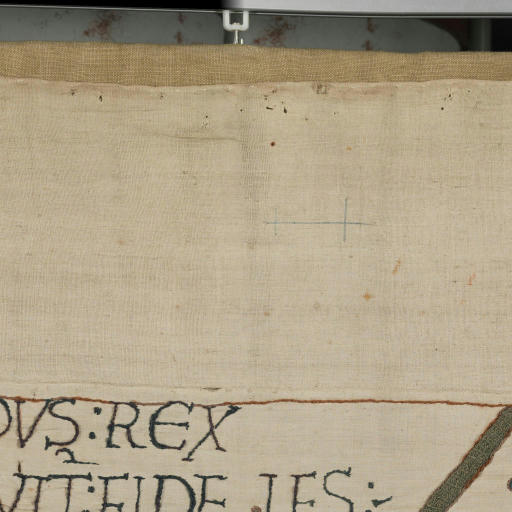 DVS:REX
VIT:FIDE LES: